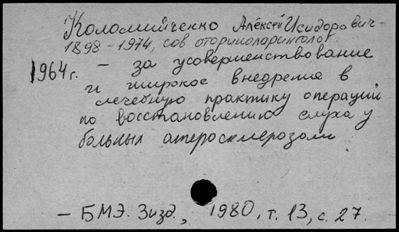 Коломийченко Алексей Исидорович-
1898 - 1974, сов оториноларинголог
1964г. - за усовершенствование
и широкое внедрение в
лечебную практику операций
по восстановлению слуха у
больных атеросклерозом
- БМЭ. 3изд., 1980, т. 13, с. 27.